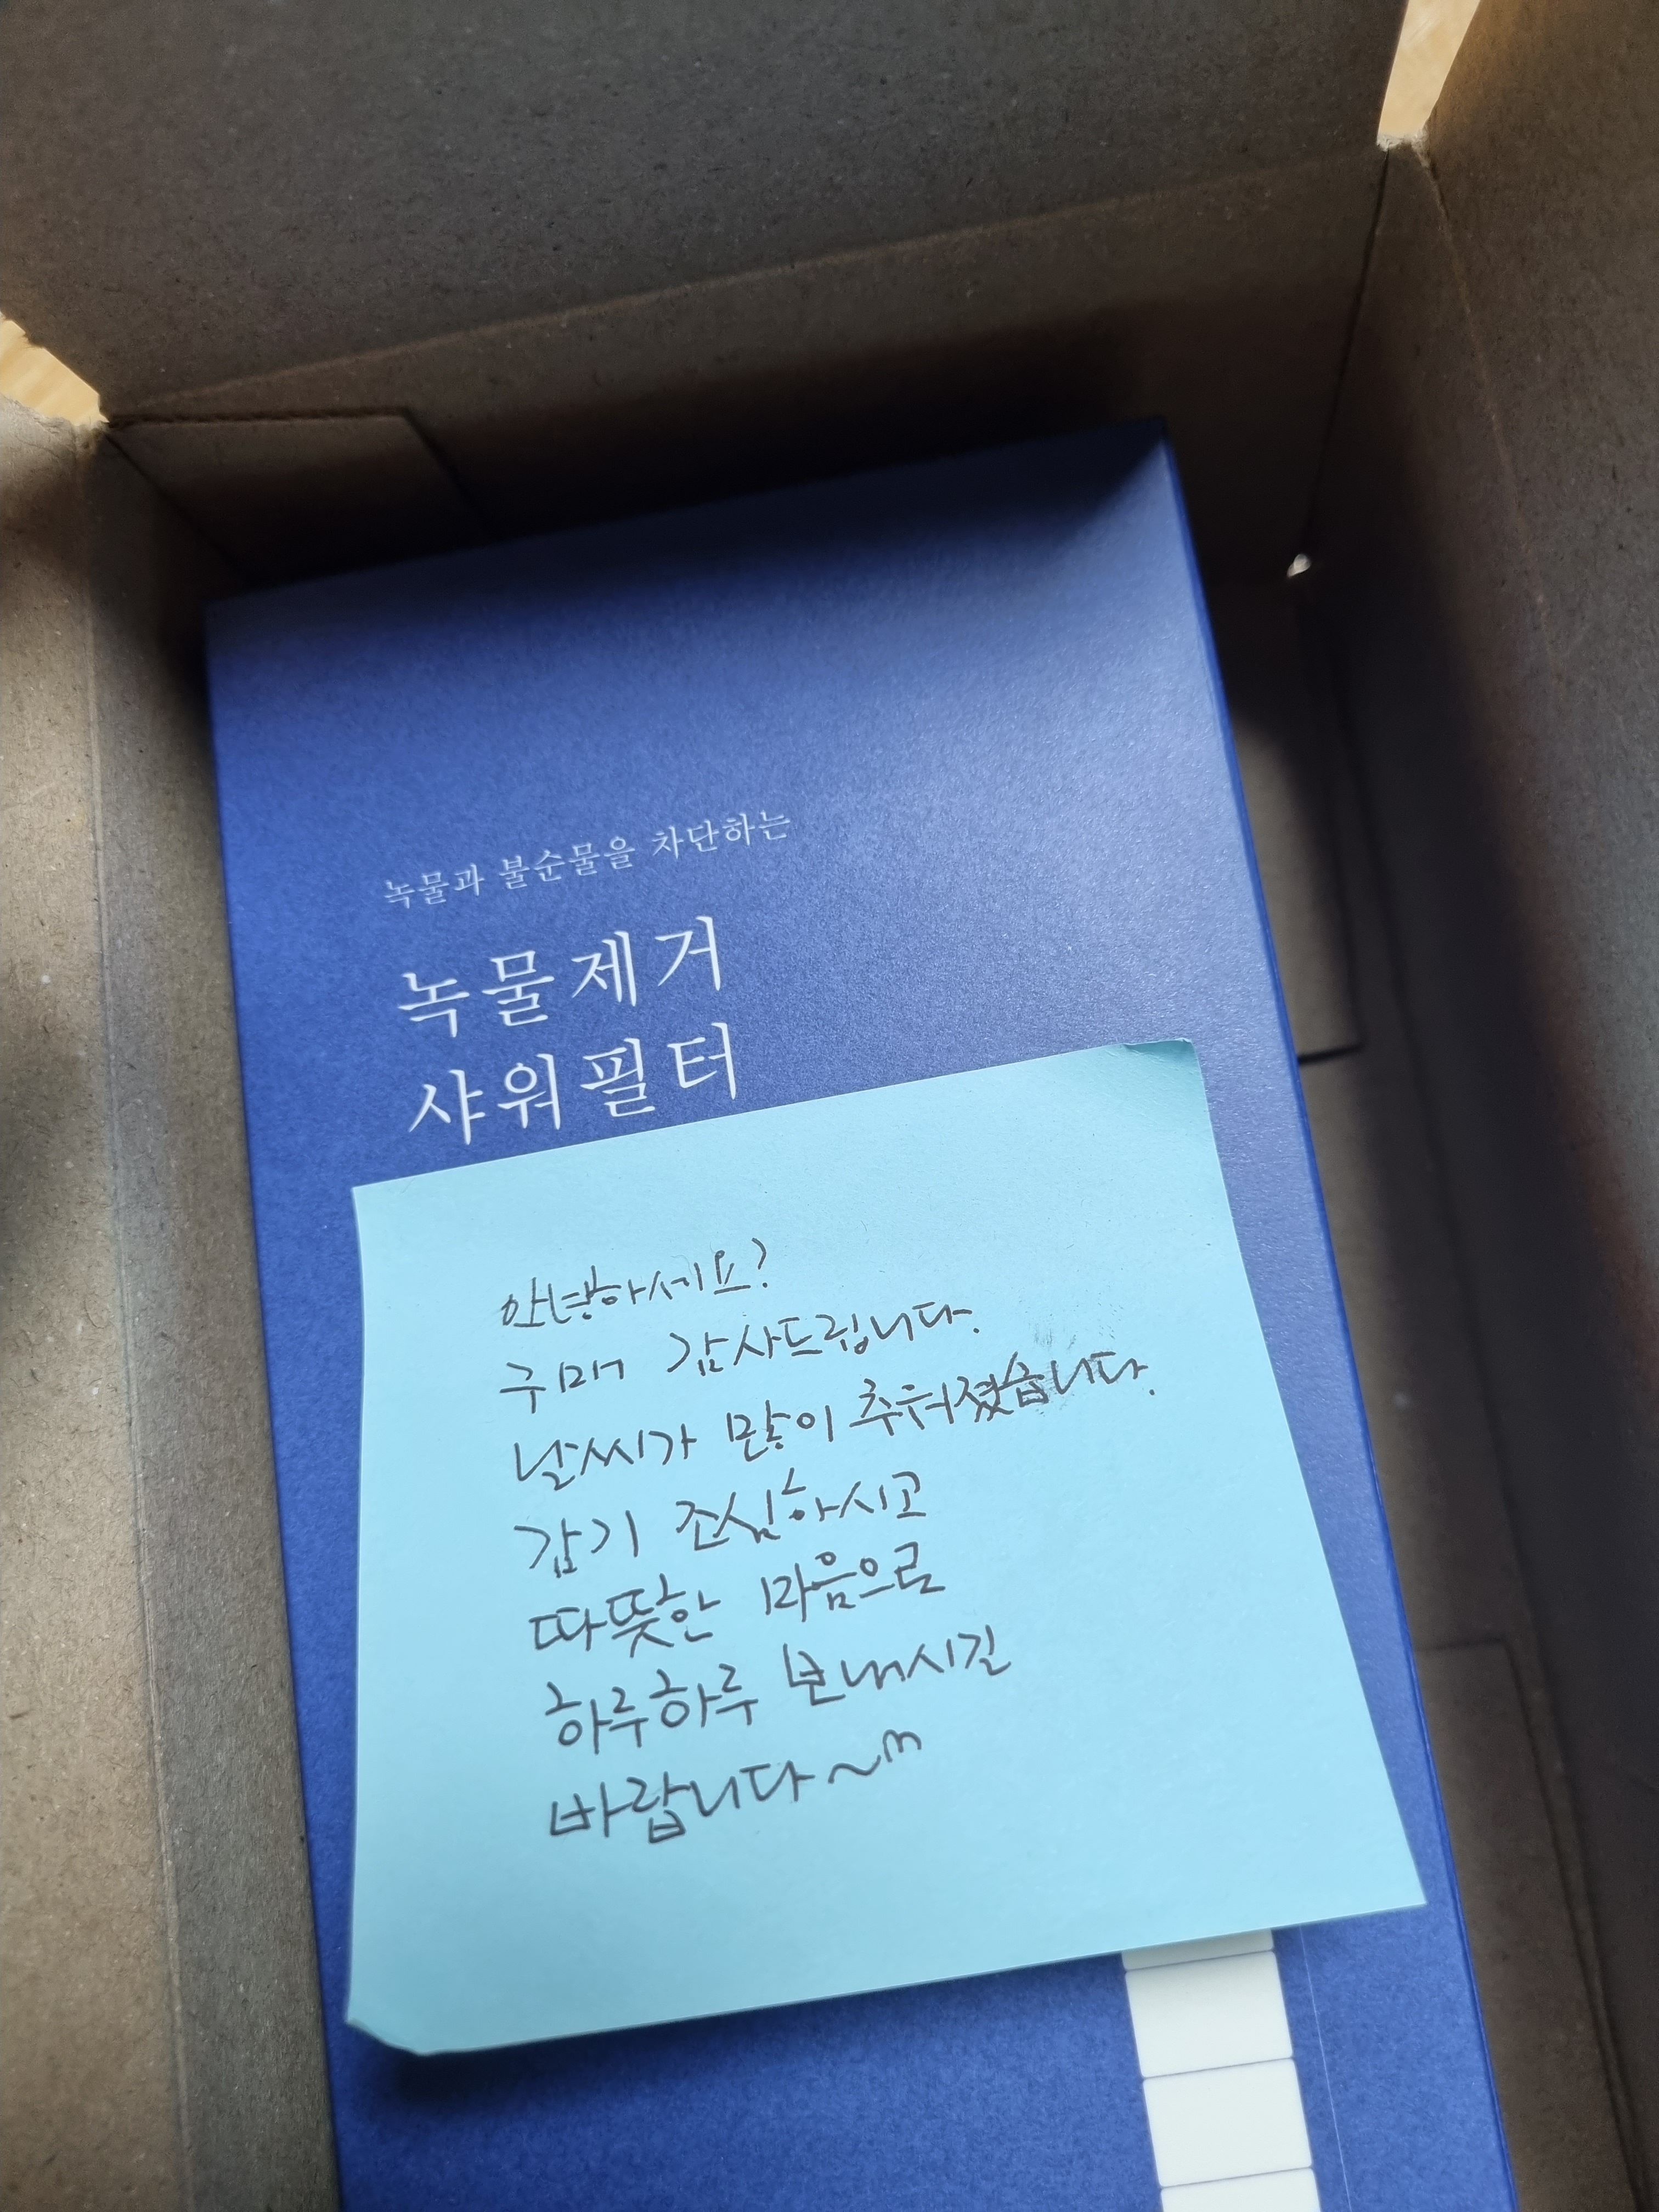 녹물과 불순물을 차단하는
녹물제거
샤워필터
안녕하세요?
구매 감사드립니다.
날씨가 많이 추워졌습니다.
감기 조심하시고
따뜻한 마음으로
하루하루 보내시길
바랍니다~^^